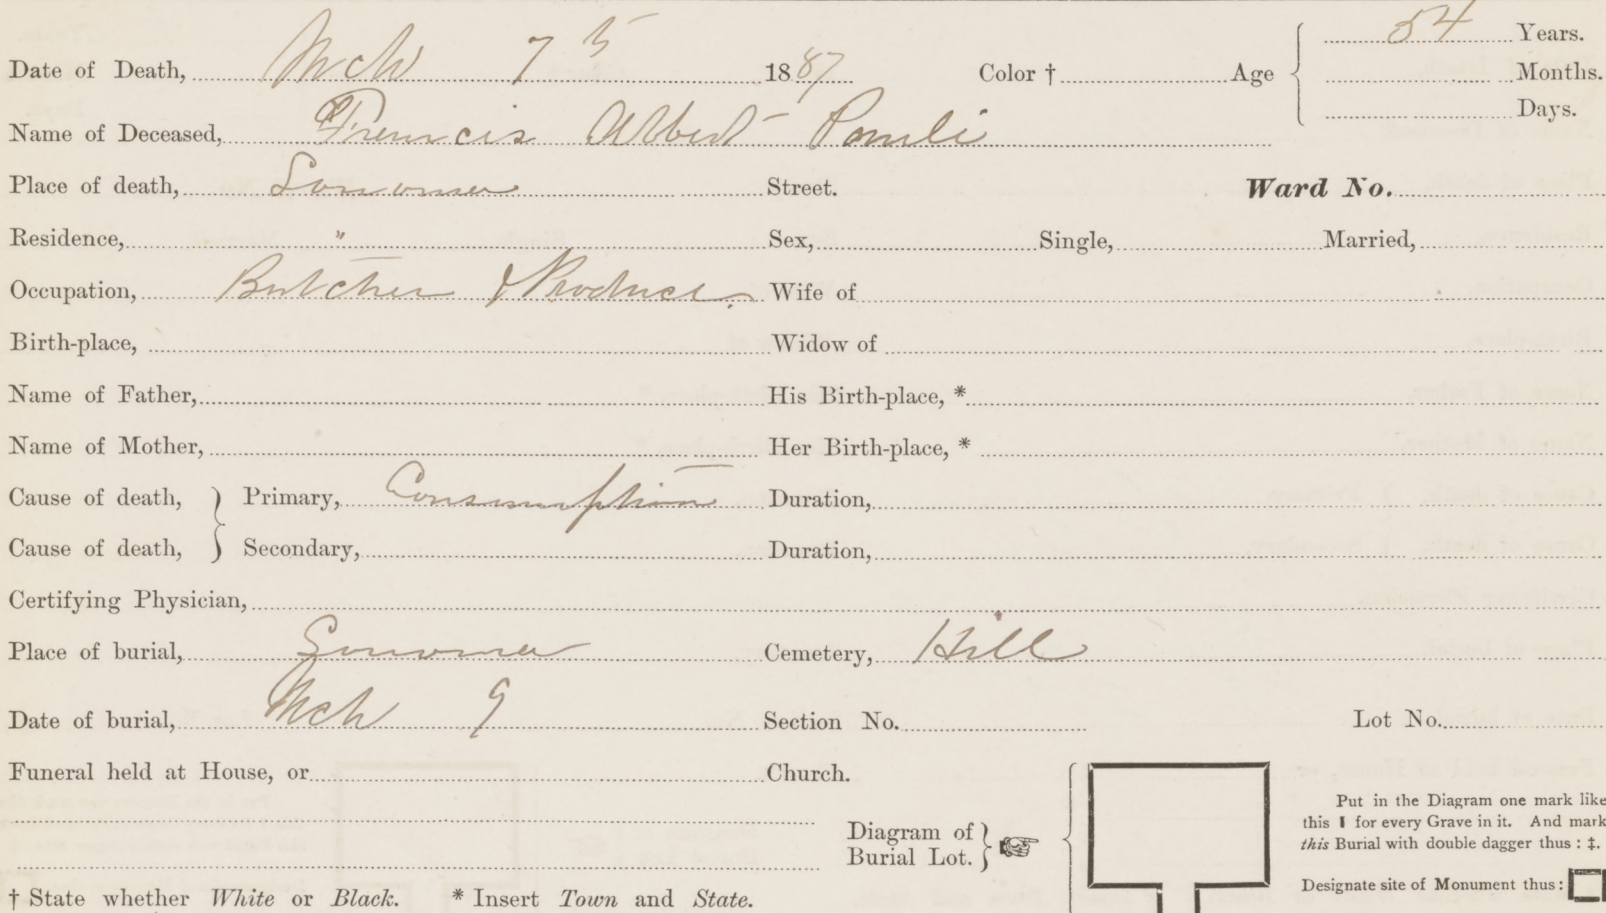 54 Years.
Date of Death, Mch 7th 1887 Color † Age Months.
Days.
Name of Deceased, Francis Albert Pauli
Place of death, Sonoma Street. Ward No.
Residence, " Sex, Single, Married,
Occupation, Butcher & Produce. Wife of
Birth-place, Widow of
Name of Father, His Birth-place, *
Name of Mother, Her Birth-place, *
Cause of death, } Primary, Consumption Duration,
Cause of death, } Secondary, Duration,
Certifying Physician,
Place of burial, Sonoma Cemetery, Hill
Date of burial, Mch 9 Section No. Lot No.
Funeral held at House, or Church.
Put in the Diagram one mark like
this ▮ for every Grave in it. And mark
this Burial with double dagger thus : ‡.
Diagram of
Burial Lot. } ☞
Designate site of Monument thus :
† State whether White or Black. * Insert Town and State.